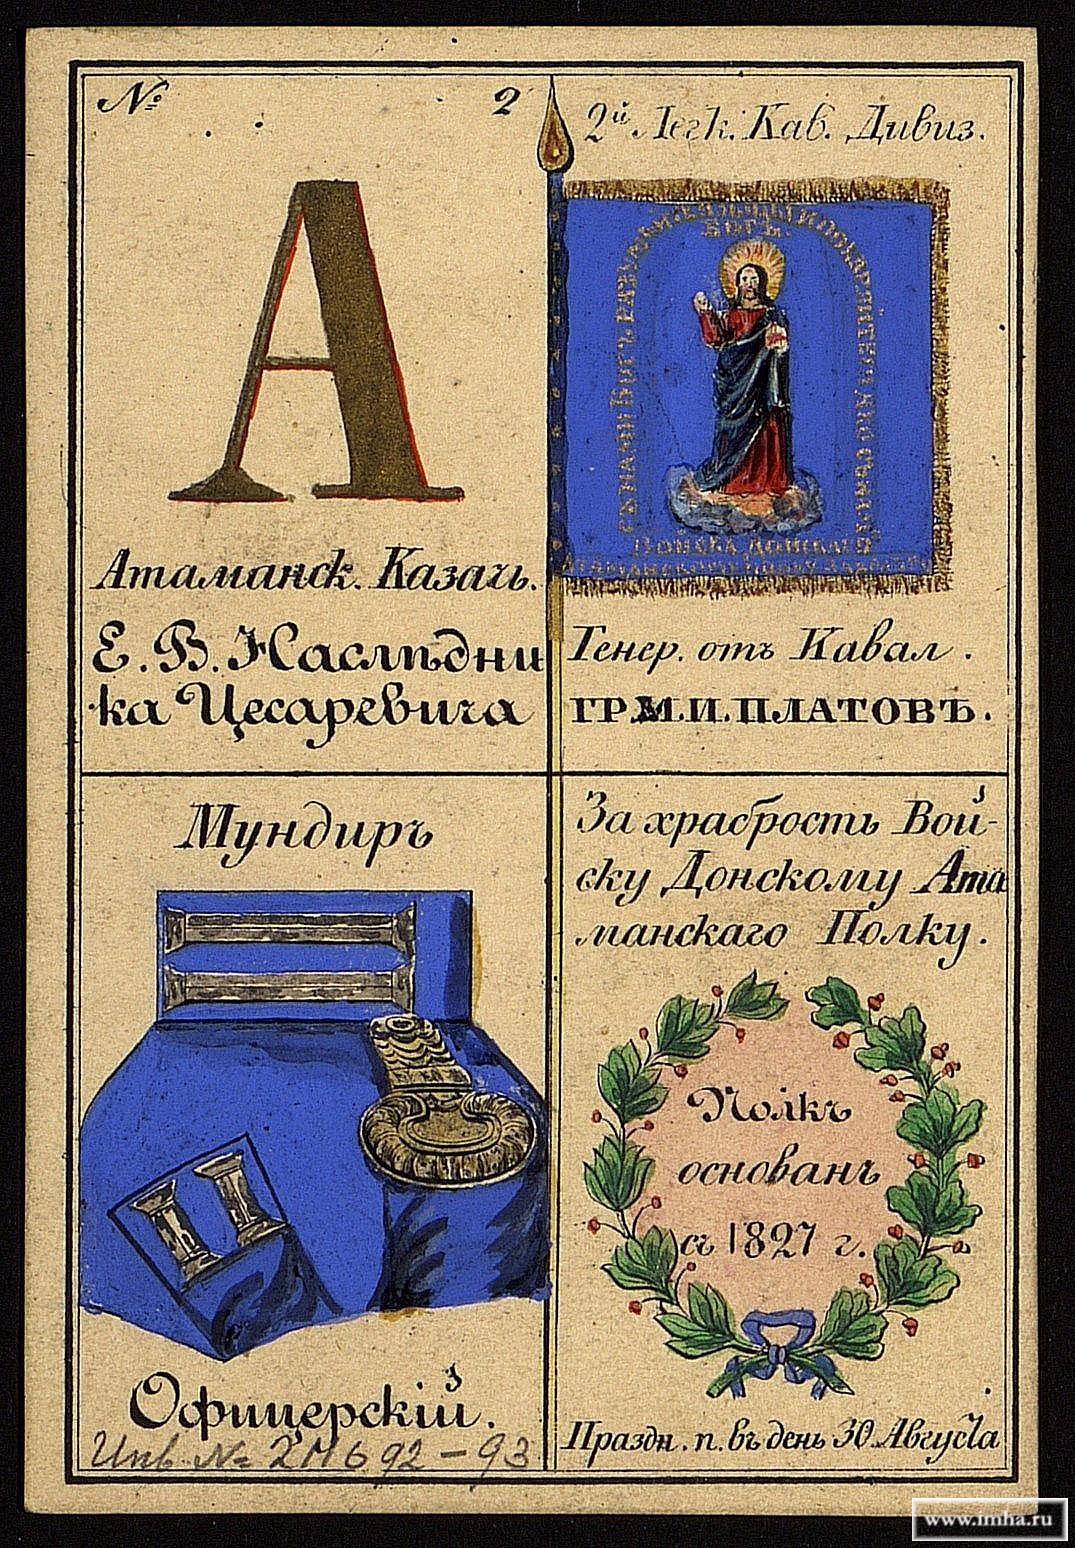 № 2
А
Атаманск. Казачь.
Е. В. Наслѣдни
ка Цесаревича
2й Легк. Кав. Дивиз.
БОГЪ.
ВОЙСКА ДОНСКАГО
Генер. отъ Кавал.
ГР. М. И. ПЛАТОВЪ.
Мундиръ
Офицерскій.
Инв. № 2М692-93
За храбрость Вой-
ску Донскому Ата
манскаго Полку.
Полкъ
основанъ
съ 1827 г.
Праздн. п. въ день 30 Августа
www.lmha.ru